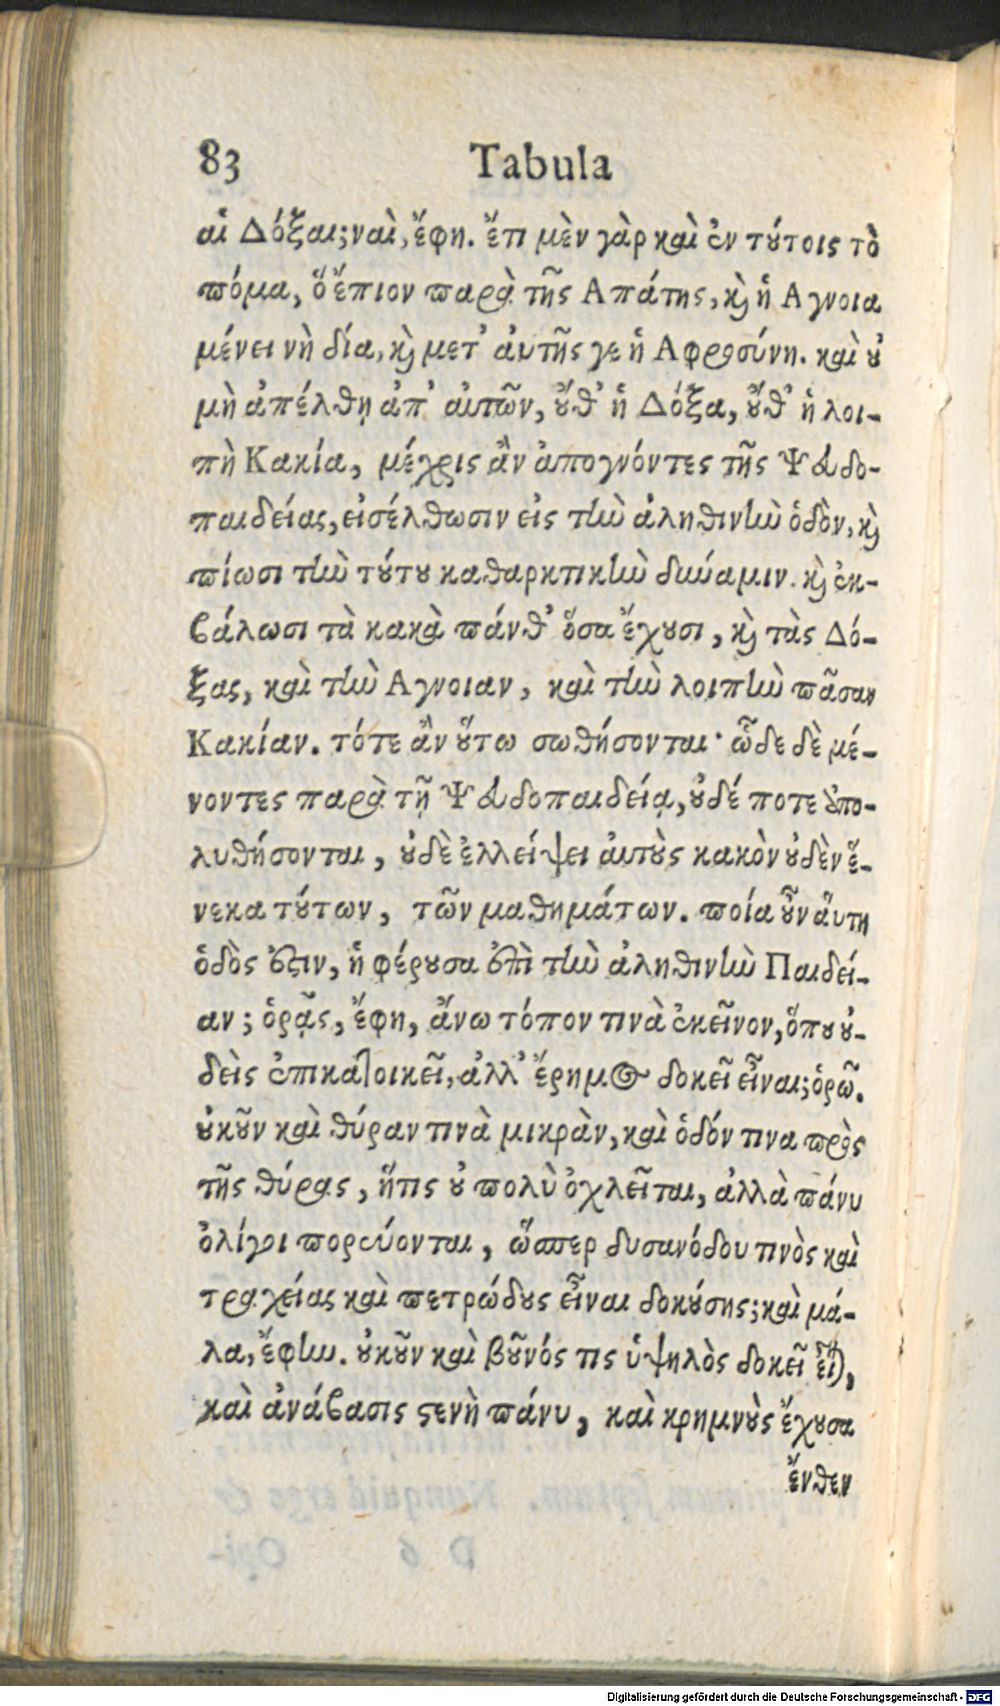 83 Tabula
αἱ Δόξαι; ναὶ, ἔφη. ἔτι μὲν γὰρ καὶ ἐν τύτοις τὸ
πόμα, ὃ ἔπιον παρὰ τῆς Απάτης, κὶ ἡ Αγνοια
μένει νὴ δία, κὶ μετ' ἀυτῆς γε ἡ Αφροσύνη. καὶ ȣ
μὴ ἀπέλθῃ ἀπ' αὐτῶν, ȣ̓́θ' ἡ Δόξα, ȣ̓́θ' ἡ λοι-
πὴ Κακία, μέχρις ἂν ἀπογνόντες τῆς Ψευδο-
παιδείας, εἰσέλθωσιν εἰς τὴν ἀληθινὴν ὁδὸν, κὶ
πίωσι τὴν τȣ́τȣ καθαρκτικὴν δύναμιν. κὶ ἐκ-
βάλωσι τὰ κακὰ πάνθ' ὅσα ἔχȣσι, κὶ τὰς Δό-
ξας, καὶ τὴν Αγνοιαν, καὶ τὴν λοιπὴν πᾶσαν
Κακίαν. τότε ἂν ȣ̔́τω σωθήσονται· ὧδε δὲ μέ-
νοντες παρὰ τῇ Ψευδοπαιδείᾳ, ȣ̓δέ ποτε ἀπο-
λυθήσονται, ȣ̓δὲ ἐλλείψει αὐτȣ̀ς κακὸν ȣ̓δὲν ἕ-
νεκα τȣ́των, τῶν μαθημάτων. ποία ȣ̓͂ν ἅυτη
ὁδὸς ἐστιν, ἡ φέρȣσα ἐπὶ τὴν ἀληθινὴν Παιδεί-
αν; ὁρᾷς, ἔφη, ἄνω τόπον τινὰ ἐκεῖνον, ὅπȣ ȣ̓-
δεὶς ἐπικατοικεῖ, ἀλλ' ἔρημος δοκεῖ εἶναι; ὁρῶ.
ȣ̓κȣ͂ν καὶ θύραν τινὰ μικρὰν, καὶ ὁδόν τινα πρὸς
τῆς θύρας, ἥτις ȣ̓ πολὺ ὀχλεῖται, ἀλλὰ πάνυ
ὀλίγοι πορεύονται, ὥσπερ δυσανόδου τινὸς καὶ
τραχείας καὶ πετρώδȣς εἶναι δοκȣ́σης; καὶ μά-
λα, ἔφην. ȣ̓κȣ͂ν καὶ βȣ͂νός τις ὑψηλὸς δοκεῖ εἶναι,
καὶ ἀνάβασις στενὴ πάνυ, καὶ κρημνȣ̀ς ἔχȣσα
ἔνθεν
Digitalisierung gefördert durch die Deutsche Forschungsgemeinschaft - DFG